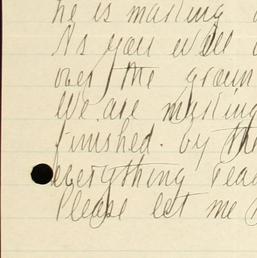 he is making
As you will
over the groun
We are
finished. by the
everything rea
Please let me